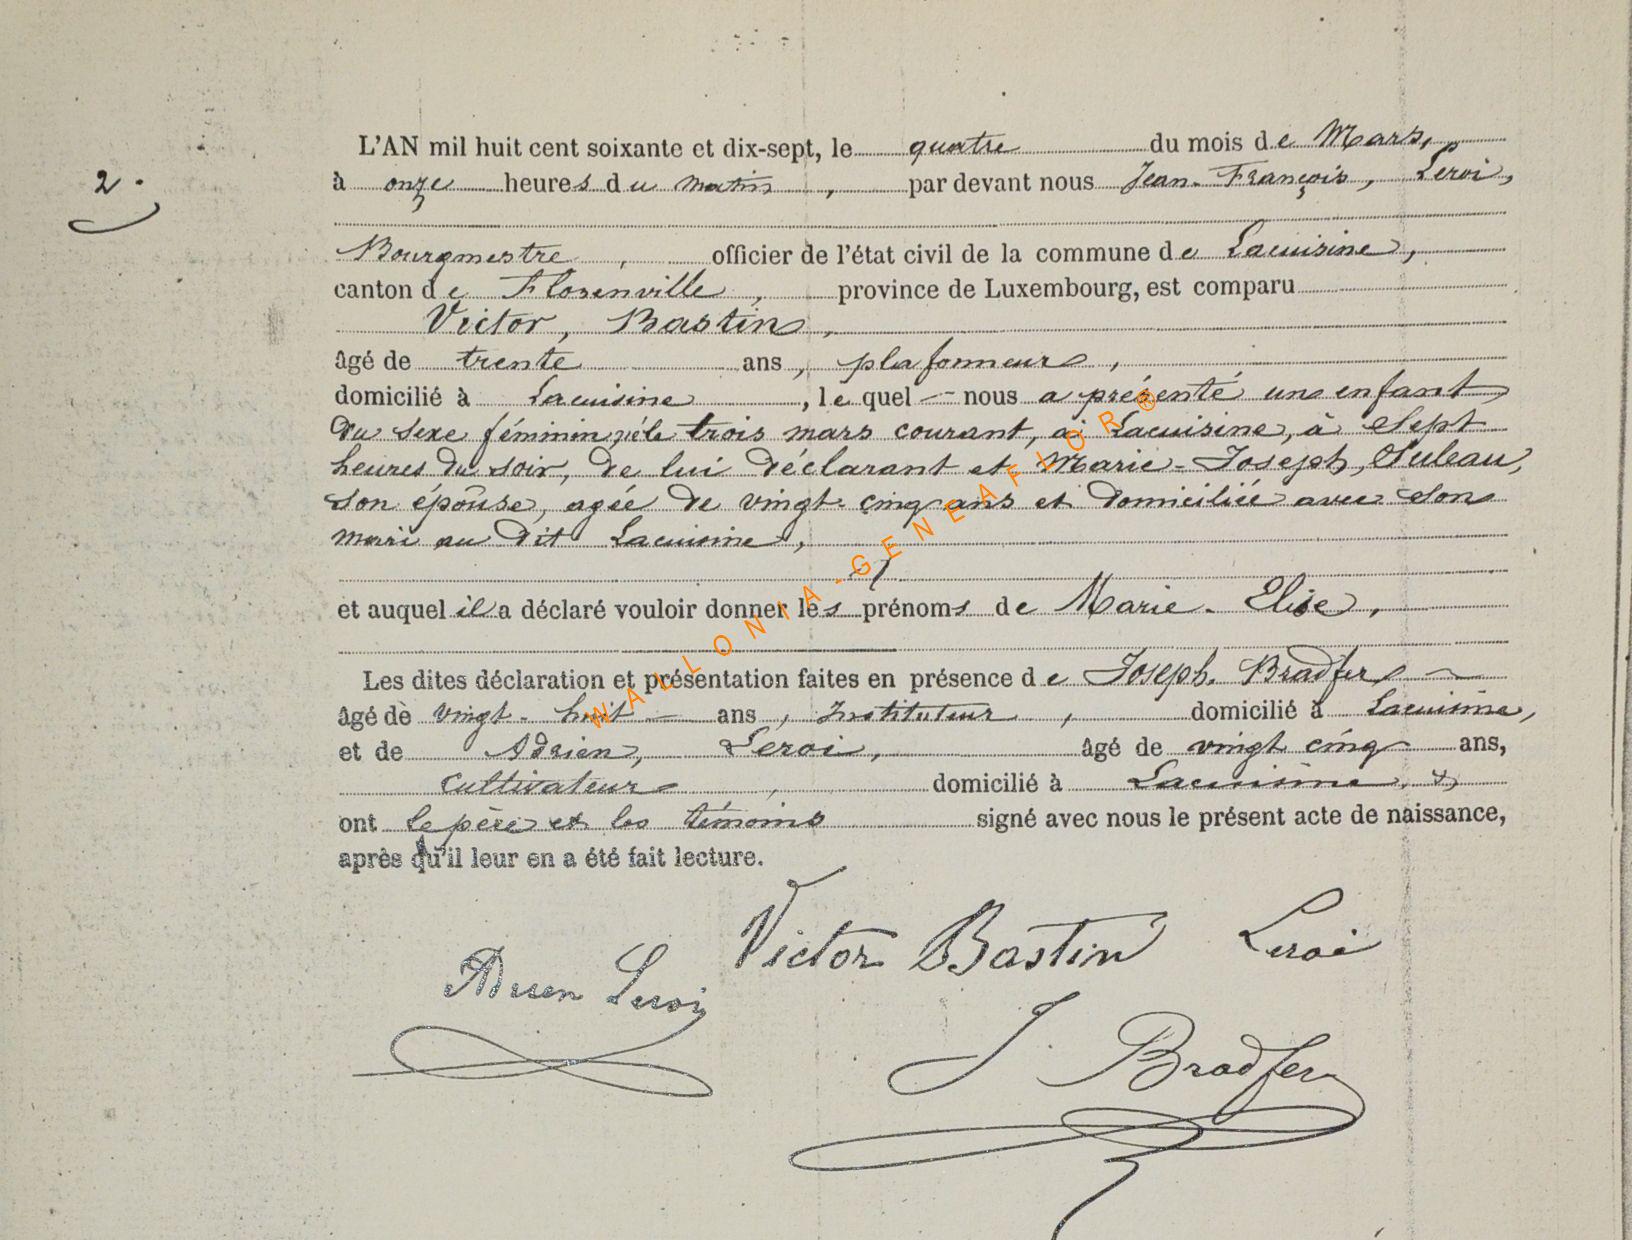 2.
L'AN mil huit cent soixante et dix-sept, le quatre du mois de Mars,
à onze heures du matin, par devant nous Jean-François, Leroi,
Bourgmestre, officier de l'état civil de la commune de Lacuisine,
canton de Florenville, province de Luxembourg, est comparu
Victor, Bastin,
âgé de trente ans, plafonneur,
domicilié à Lacuisine, le quel nous a présenté un enfant
du sexe féminin, née le trois mars courant, à Lacuisine, à Sept
heures du soir, de lui déclarant et Marie-Joseph, Suleau,
son épouse, agée de vingt-cinq ans et domiciliée avec son
mari au dit Lacuisine,
et auquel il a déclaré vouloir donner les prénoms de Marie-Elise,
Les dites déclaration et présentation faites en présence de Joseph Bradfer
âgé de vingt-huit ans, Instituteur, domicilié à Lacuisine,
et de Adrien, Leroi, âgé de vingt cinq ans,
cultivateur, domicilié à Lacuisine, &
ont le père et les témoins signé avec nous le présent acte de naissance,
après qu'il leur en a été fait lecture.
Victor Bastin Leroi
Adrien Leroi
J. Bradfer
WALLONIA-GENEAFLOR®